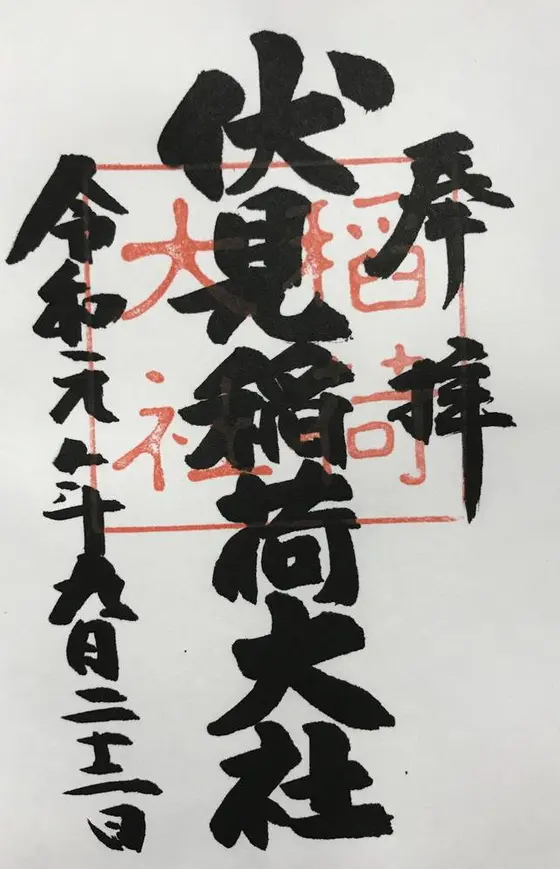 奉拝
伏見稲荷大社
令和元年九月二十二日
稲荷
大社